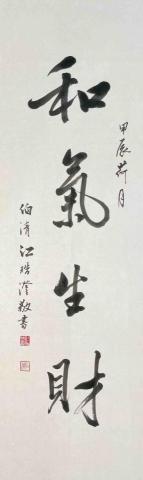 甲辰荷月
和氣生財
伯清江瑞澄敬書